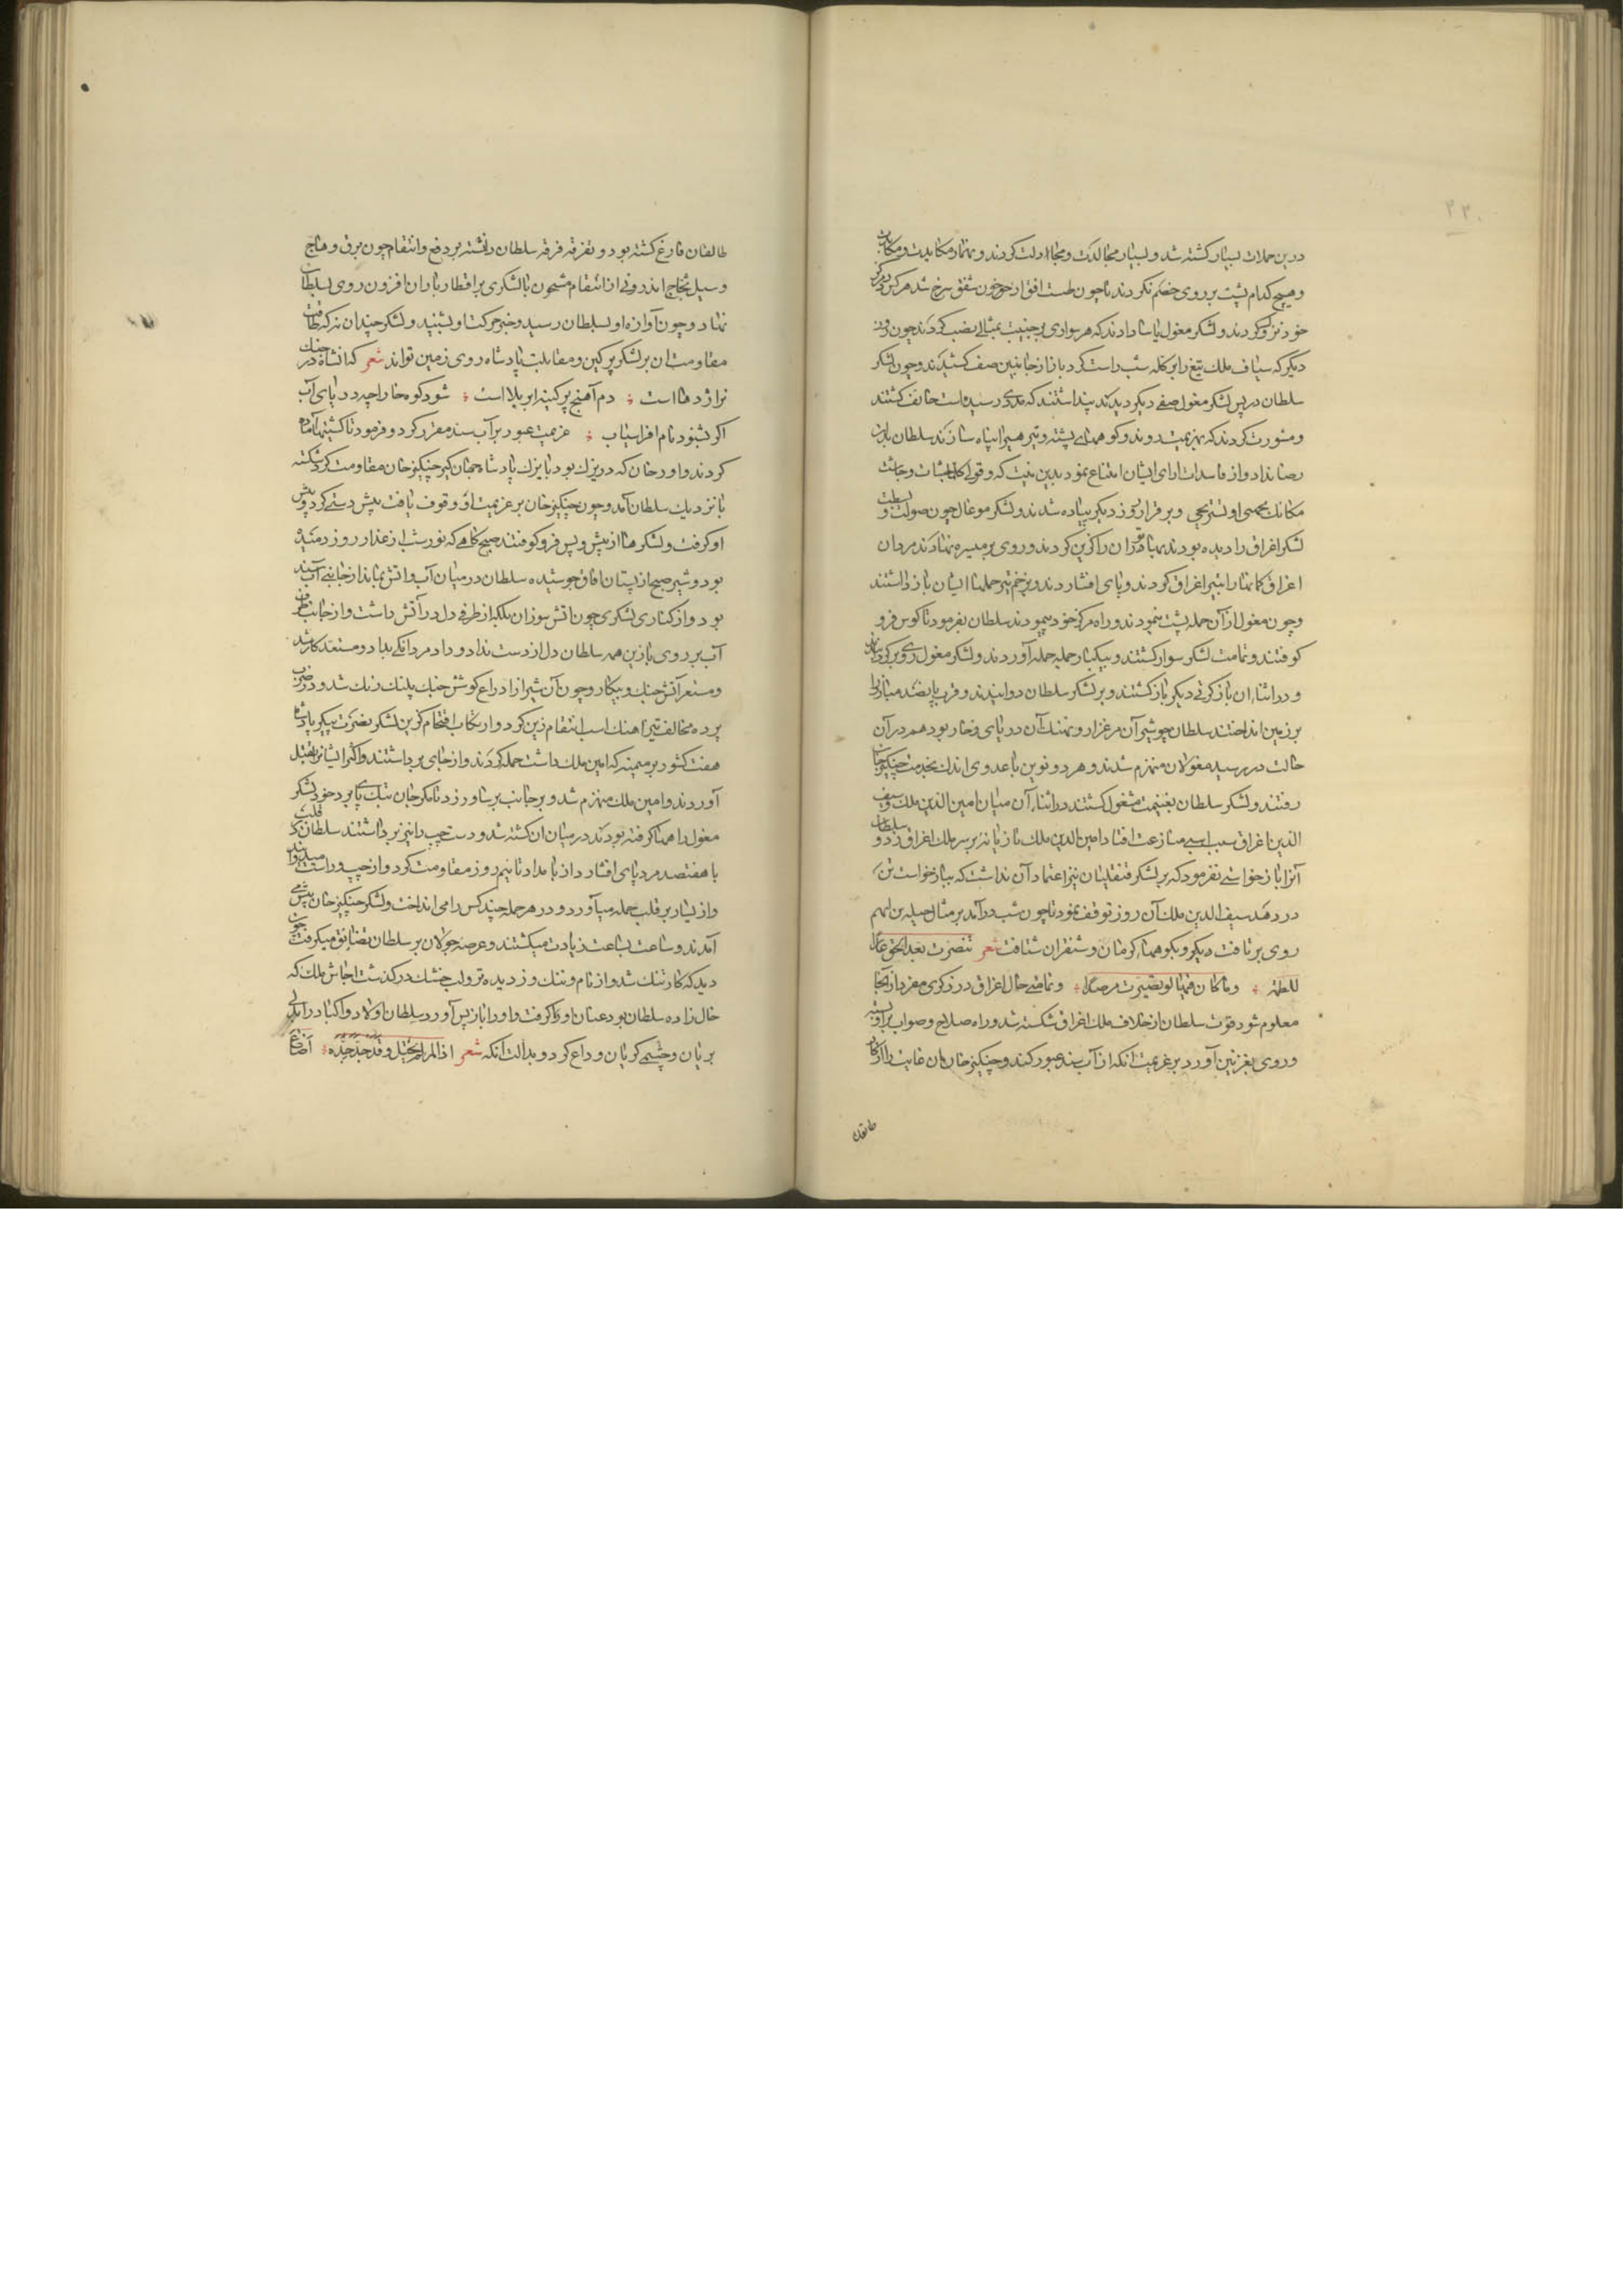 درین حملات بسیار کشته شد و بسیار مجالدت و مجادلت کردند و نهاد مکایدت و مکاوحت
و هیچ کدام پشت بر روی خصم نکردند تا چون طشت افق از خون شفق سرخ شد هر کس در مرکز
خود نزول کردند و لشکر مغول یاسا دادند که هر سواری بر جنیبت مثالی نصب کردند چون روز
دیگر که سیاف فلک تیغ را بر کله شب راست کرد باز از جانبین صف کشیدند و چون لشکر
سلطان در پس لشکر مغول صفی دیگر دیدند پنداشتند که مددی رسیده است خائف گشتند
و مشورت کردند که بهزیمت روند و کوههای پشته و تیر هیرا پناه سازند سلطان بدان
رضا نداد و از فاسدات ارای ایشان امتناع نمود بدین بیت که وقولی کلما جشات و جاشت
مکانک تحمدی او تستریحی و بر قرار روز دیگر پیاده شدند و لشکر موغال چون صولت و بسطت
لشکر اغراق را دیده بودند بهادران را گزین کردند و روی بر میسره نهادند مردان
اغراق کمانها را بتیر اغراق کردند و پای افشاردند و بزخم تیر حملهاء ایشان باز داشتند
و چون مغول از آن حمله پشت نمودند و راه مرکز خود پیمودند سلطان بفرمود تا کوس فرو
کوفتند و تمامت لشکر سوار گشتند و بیکبار حمله حمله آوردند و لشکر مغول روی برگردانید
و در اثناء ان باز کرتی دیگر باز گشتند و بر لشکر سلطان دوانیدند و قرب پانصد مبارز را
بر زمین انداختند سلطان چو شیر آن مرغزار و نهنگ آن دریای زخار بود هم در آن
حالت در رسید مغولان منهزم شدند و هر دو نوین با عددی اندک بخدمت چنگیز خان
رفتند و لشکر سلطان بغنیمت مشغول گشتند در اثناء آن میان امین الدین ملک و سیف
الدین اغراق سبب اسبی منازعت افتاد امین الدین ملک تازیانه بر سر ملک اغراق زد و سلطان
آنرا باز خواستی نفرمود که بر لشکر قنقلیان نیز اعتماد آن نداشت که بباز خواست تن
در دهند سیف الدین ملک آن روز توقف نمود تا چون شب درآمد بر مثال جبلة بن ایهم
روی بر تافت دیگر و بکوههاء کرمان و شنقران شتافت شعر تنصرت بعد الحق عارا
للطمة ؞ و ما کان فیها لو صبرت من ضرر ؞ و تمامی حال اغراق در ذکری مفرد از آنجا
معلوم شود قوت سلطان از خلاف ملک اغراق شکسته شد و راه صلاح و صواب بر او بسته
و روی بغزنین آورد بر عزیمت انکه از آب سند عبور کند و چنگیز خان ان غایت را از کار
طالقان
طالقان فارغ گشته بود و تفرقه فرقه سلطان دانسته بر دفع و انتقام چون برق وهاج
و سیل ثجاج اندرونی از انتقام مشحون با لشکری بر اقطار باران افزون روی بسلطان
نهاد و چون آوازه او بسلطان رسید و خبر حرکت او بشنید و لشکر چندان نه که طاقت
مقاومت ان بر لشکر پر کین و مقابلت پادشاه روی زمین تواند شعر که انشاه در جنگ
نر اژدها است ؞ دم آهنج پر کینه ابر بلا است ؞ شود کوه خارا چه دریای آب
اگر بشنود نام افراسیاب ؞ عزیمت عبور بر آب سند مقرر کرد و فرمود تا کشتیها آماده
کردند و اورخان که در یزک بود با یزک پادشاه جهان گیر چنگیز خان مقاومت کرد شکسته
با نزدیک سلطان آمد و چون چنگیز خان بر عزیمت او وقوف یافت پیش دستی کرد و پیش
او گرفت و لشکرها از پیش و پس فرو کوفتند صبح گاهی که نور شب از عذار روز دمیده
بود و شیر صبح از پستان افاق جوشیده سلطان در میان آب و اتش بماند از جانبی آب سند
بود و از کناری لشکری چون اتش سوزان بلکه از طرفی دل در آتش داشت و از جانب طرفی
آب بر روی با زین همه سلطان دل از دست نداد و داد مردانگی بداد و مستعد کار شد
و مسعر آتش جنگ و پیکار و چون آن شیر ازا دراع گوشش جنگ پلنگ رنگ شد و در ضرب
پرده مخالف تیر اهنگ اسب انتقام زین کرد و ارتکاب اقتحام گزین لشکر نصرت پیکر پادشاه
هفت کشور بر میمنه که امین ملک داشت حمله کردند و از جای برداشتند و اکثر ایشان را بقتل
آوردند و امین ملک منهزم شد و بر جانب برساور زد تا مگر جان بتک پای برد خود لشکر
مغول راهها گرفته بودند در میان ان کشته شد و دست چپ را نیز برداشتند سلطان در قلب
با هفتصد مرد پای افشارد از بامداد تا نیم روز مقاومت کرد و از چپ و راست میدواند
و از یسار بر قلب حمله میآورد و در هر حمله چند کس را می انداخت و لشکر چنگیز خان پیش می
آمدند و ساعت بساعت زیادت میگشتند و عرصه جولان بر سلطان تضایق میگرفت چون
دید که کار تنگ شد و از نام و ننگ و ز دیده تر و لب خشک درگذشت اجاش ملک که
خال زاده سلطان بود عنان او را گرفت و او را باز پس آورد سلطان اولاد و اکباد را بدلی
بریان و چشمی گریان وداع کرد و بدالت آنکه شعر اذا المرء لم یحتل و قد جد جده ؞ اضاع